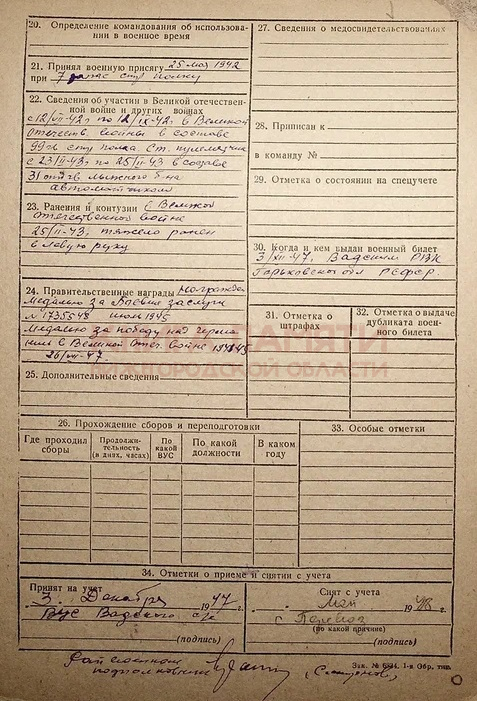 20. Определение командования об использова-
нии в военное время
21. Принял военную присягу 25 мая 1942
при 7 запас стр полку
22. Сведения об участии в Великой отечествен-
ной войне и других войнах
с 12/VII-42г по 12/IX-42г в Великой
отечеств. войны в составе
99го стр полка Ст. пулеметчик
с 23/II-43г по 25/II-43 в составе
31 отд лыжного б-на
автоматчиком
23. Ранения и контузии в Великой
отечественной войне
25/II-43г тяжело ранен
в левую руку
24. Правительственные награды Награжден
Медалью за Боевые заслуги
№ 1735548 июль 1945
Медалью за победу над герма
нией в Великой отеч. войне 1941-45
26/VII-47
25. Дополнительные сведения
26. Прохождение сборов и переподготовки
Где проходил сборы
Продолжи-
тельность
(в днях, часах)
По какой ВУС
По какой должности
В каком году
27. Сведения о медосвидетельствованиях
28. Приписан к
в команду №
29. Отметка о состоянии на спецучете
30. Когда и кем выдан военный билет
3/XII-47. Вадским РВК
Горьковской обл РСФСР.
31. Отметка о штрафах
32. Отметка о выдаче
дубликата воен-
ного билета
ПАМЯТИ
НИЖЕГОРОДСКОЙ ОБЛАСТИ
33. Особые отметки
34. Отметки о приеме и снятии с учета
Принят на учет
3. Декабря 1947 г.
ВУС Вадского с/с
(подпись)
Снят с учета
Май 1948 г.
г Перевоз
(по какой причине)
(подпись)
подполковник
Зак. № 1-я Обр. тип.